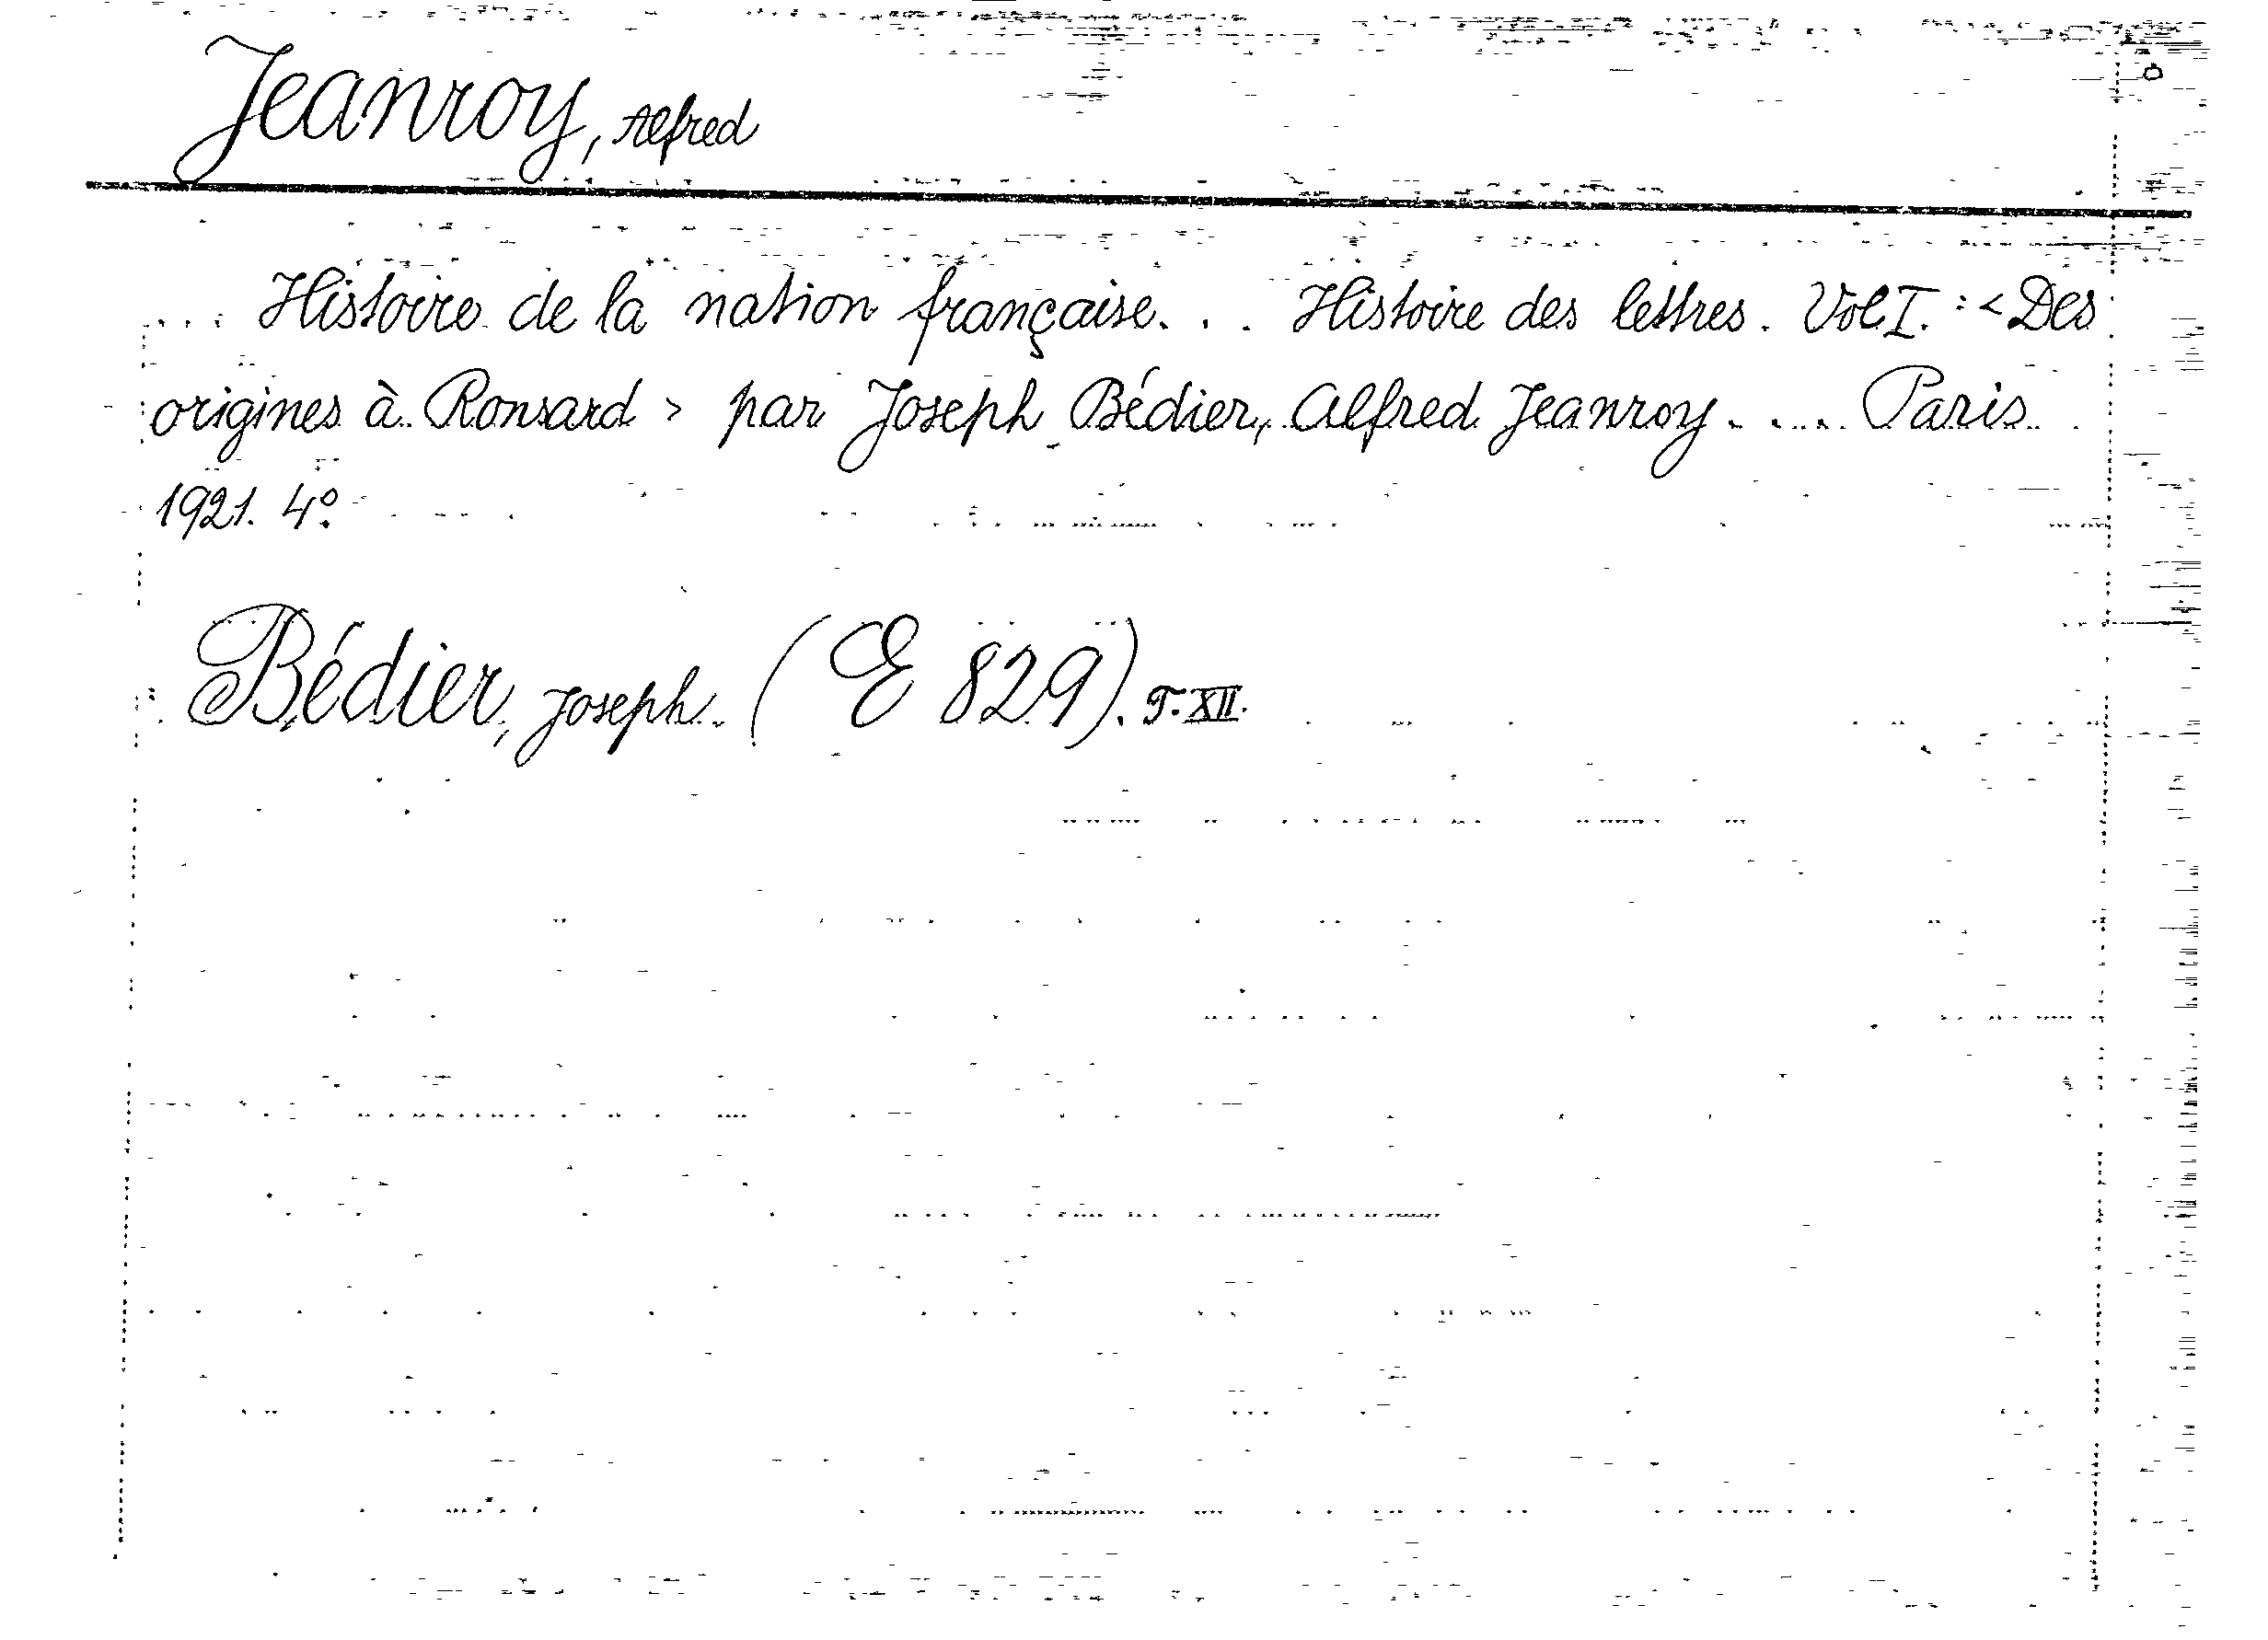 Jeanroy, Alfred
... Histoire de la nation française... Histoire des lettres. Vol I. : < Des
origines à Ronsard > par Joseph Bédier, Alfred Jeanroy.... Paris
1921. 4º.
Bédier, Joseph. (E 829). T. XII.